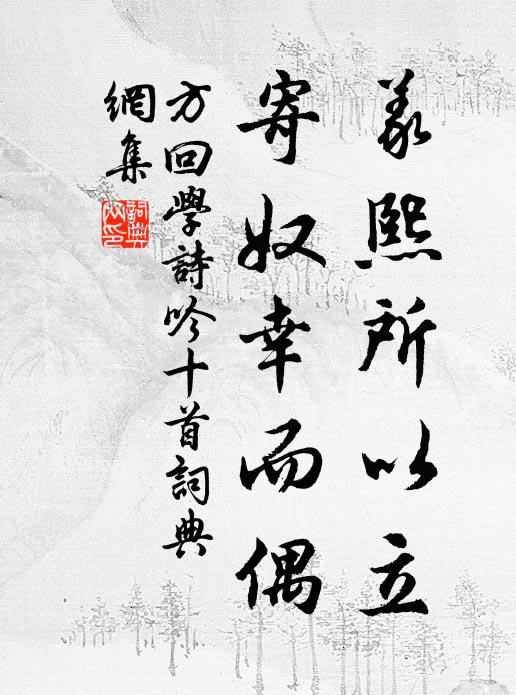 義熙所以立
寄奴幸而偶
方回學詩吟十首詞典
網集
詞典網印